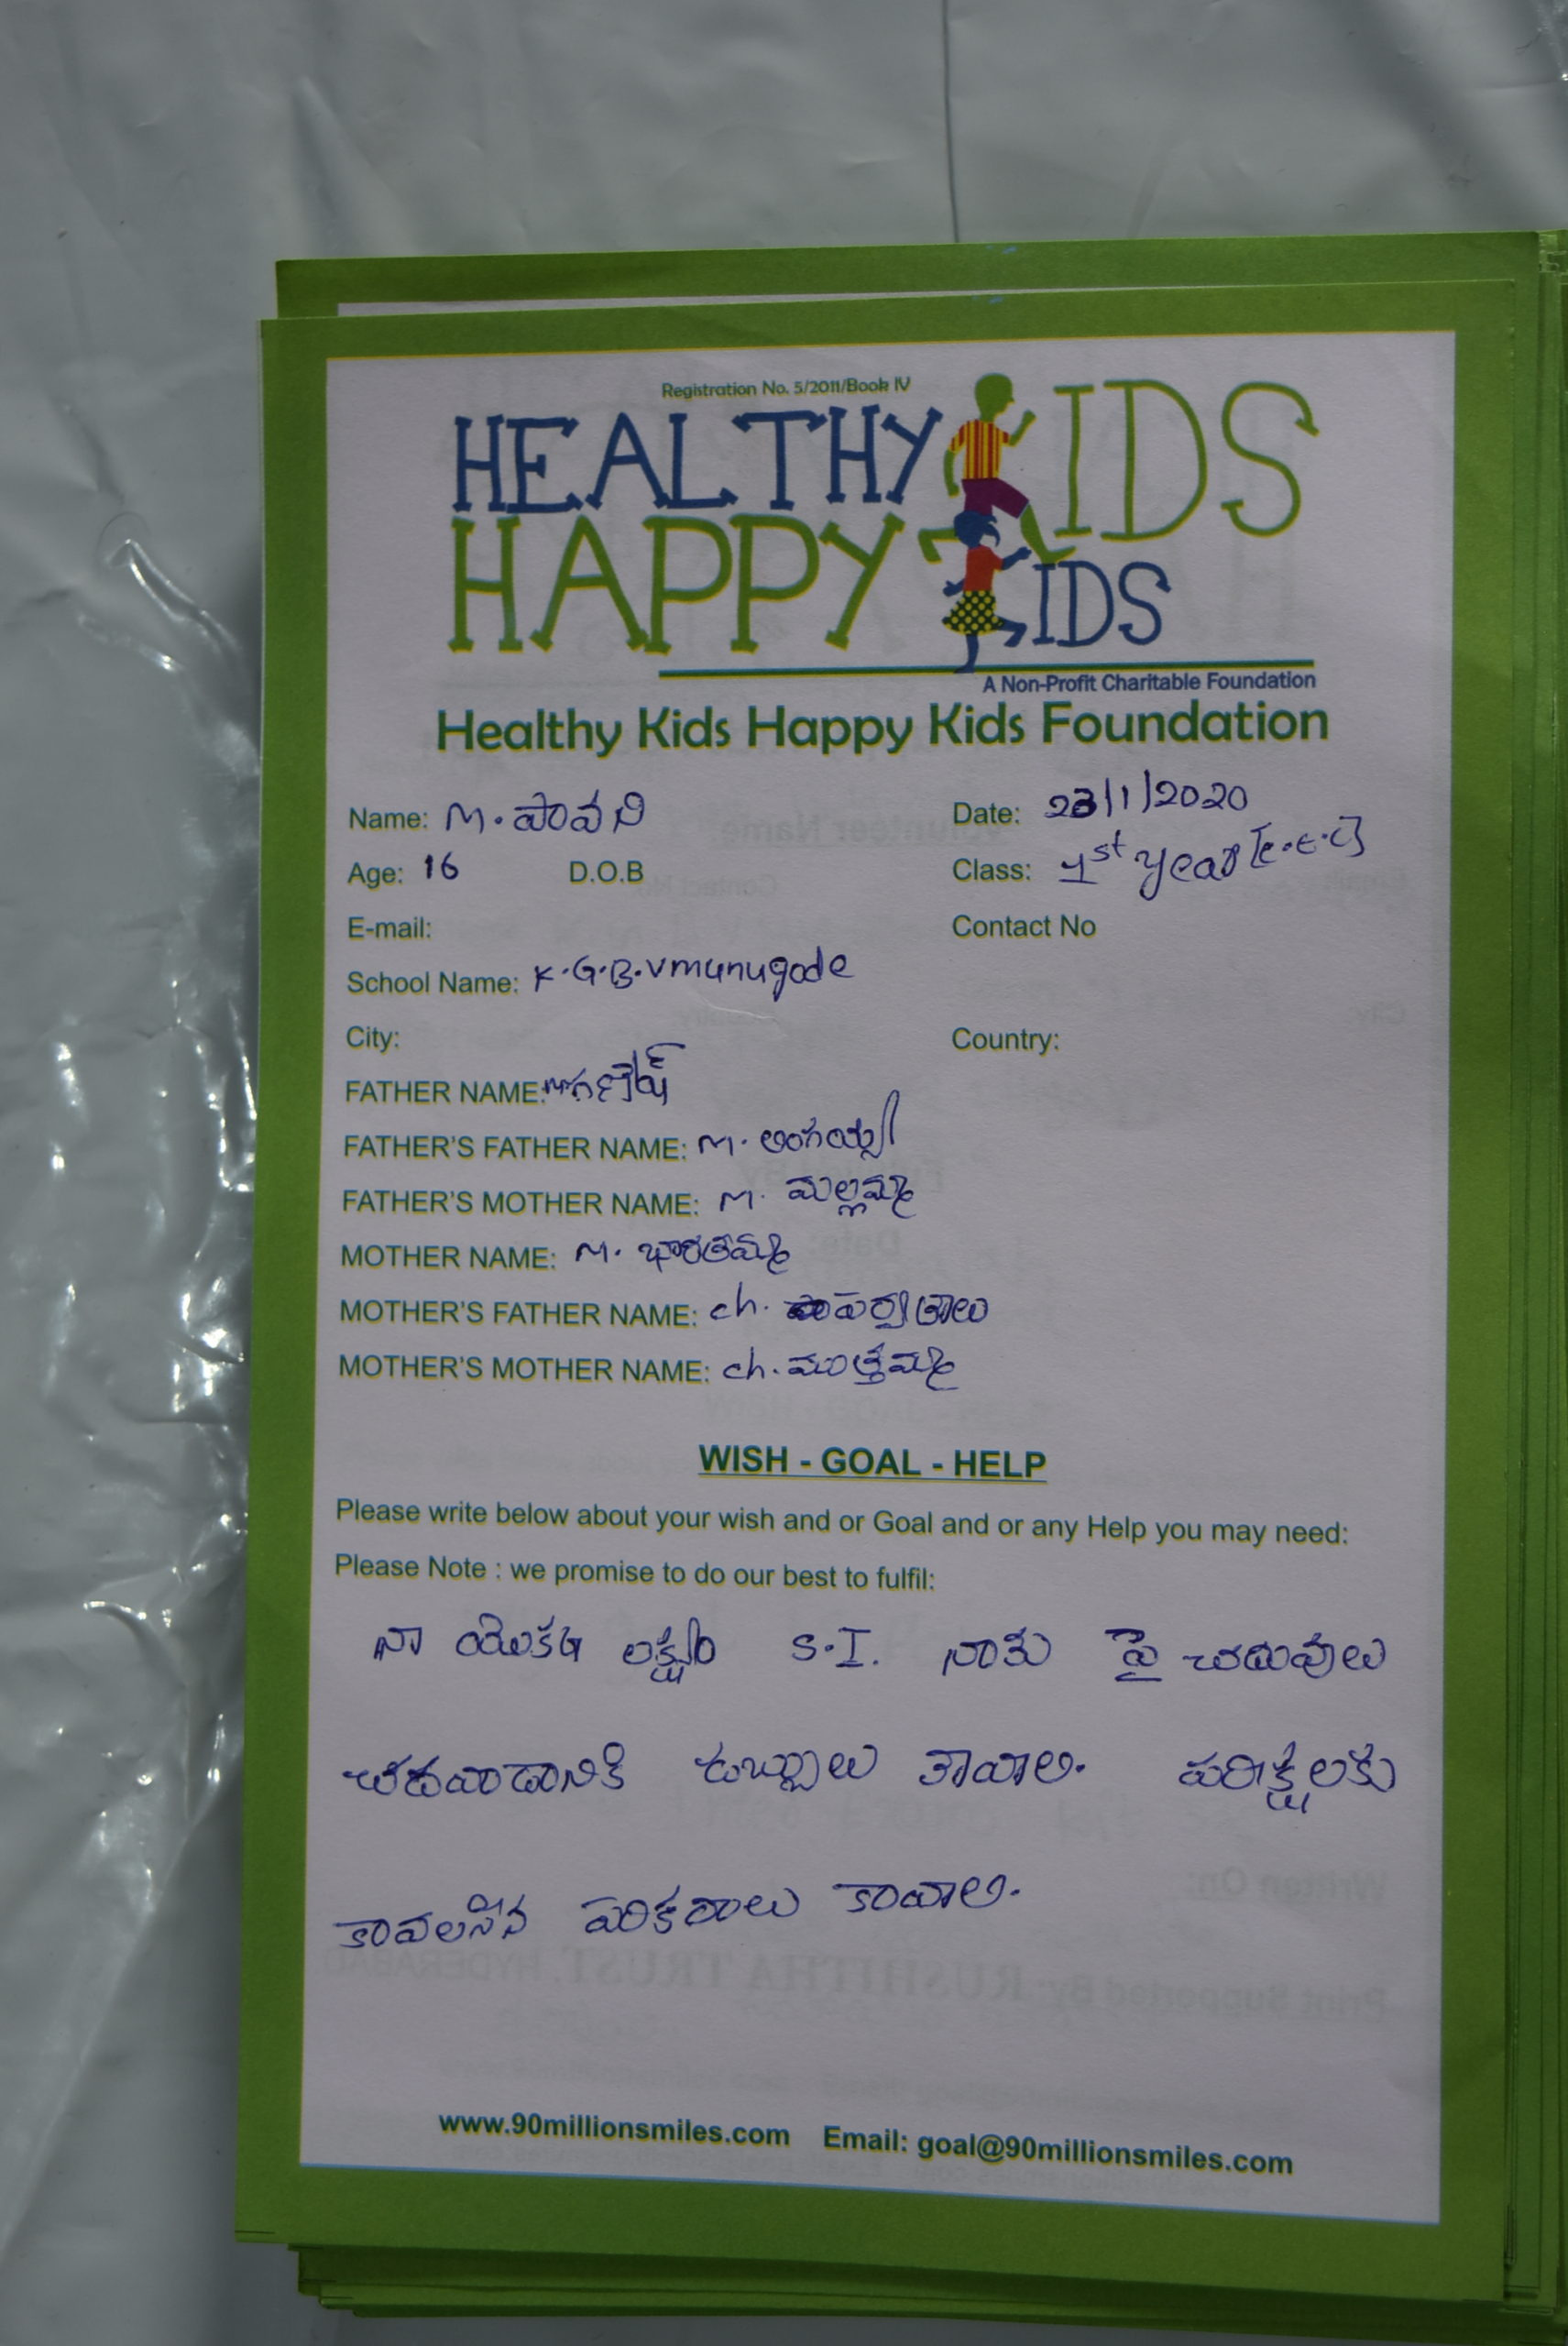 Registration No. 5/2011/Book IV
HEALTHY KIDS
HAPPY KIDS
A Non-Profit Charitable Foundation
Healthy Kids Happy Kids Foundation
Name: M. పావని Date: 23/1/2020
Age: 16 D.O.B Class: 1st year [C.E.C]
E-mail: Contact No
School Name: K.G.B.V munugode
City: Country:
FATHER NAME:
FATHER'S FATHER NAME: M. లింగయ్య
FATHER'S MOTHER NAME: M. మల్లమ్మ
MOTHER NAME: M. భారతమ్మ
MOTHER'S FATHER NAME: ch. పర్వతాలు
MOTHER'S MOTHER NAME: ch. ముత్తమ్మ
WISH - GOAL - HELP
Please write below about your wish and or Goal and or any Help you may need:
Please Note : we promise to do our best to fulfil:
నా యొక్క లక్ష్యం S.I. నాకు పై చదువులు
చదవాడానికి డబ్బులు కావాలి. పరిక్షలకు
కావలసిన పరికరాలు కావాలి.
www.90millionsmiles.com Email: goal@90millionsmiles.com